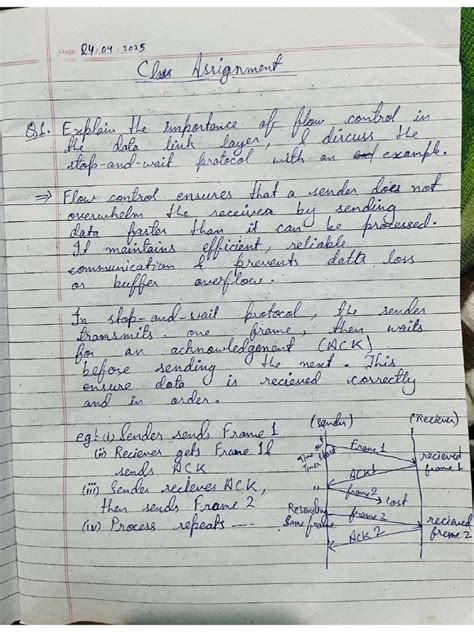 DATE: 24.04.2025
Class Assignment
Q1. Explain the importance of flow control in
the data link layer, & discuss the
stop-and-wait protocol with an example.
⇒ Flow control ensures that a sender does not
overwhelm the receiver by sending
data faster than it can be processed.
It maintains efficient, reliable
communication & prevents data loss
or buffer overflow.
In stop-and-wait protocol, the sender
transmits one frame, then waits
for an acknowledgement (ACK)
before sending the next. This
ensure data is recieved correctly
and in order.
eg:- (i) Sender sends Frame 1
(ii) Reciever gets Frame 1 &
sends ACK
(iii) Sender recieves ACK,
then sends Frame 2
(iv) Process repeats ----
(Sender) (Reciever)
Time out
Timer start
Frame 1
recieved
frame 1
ACK 1
frame 2
Lost
Resending
Same frame
frame 2
recieved
frame 2
ACK 2